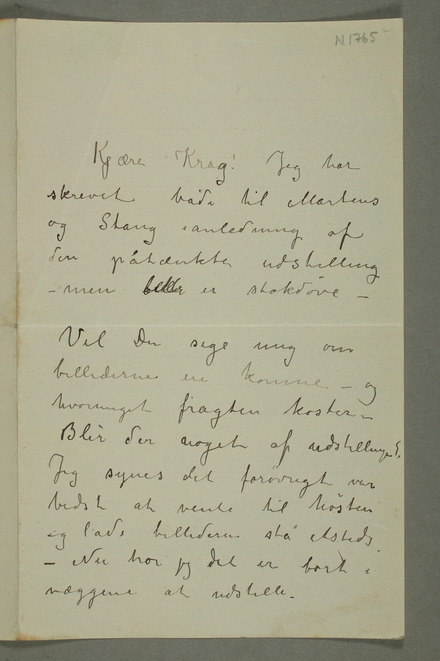 N 1765
Kjære Krag! Jeg har
skrevet både til Martens
og Stang i anledning af
den påtænkte udstilling
– men er stokdöve –
Vil Du sige mig om
billederne ere komne – og
hvormeget fragten koster –
Blir der noget af udstillingen?
Jeg synes det forövrigt var
bedst at vente til hösten
og lade billederne stå etsteds
– Nu tror jeg det er bort i
væggene at udstille.